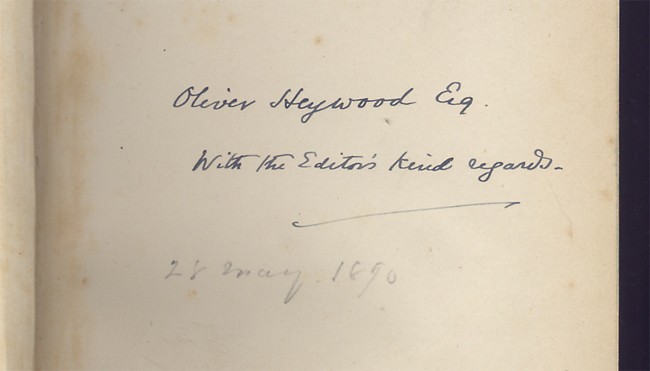 Oliver Heywood Esq.
With the Editor's kind regards -
28 May 1890